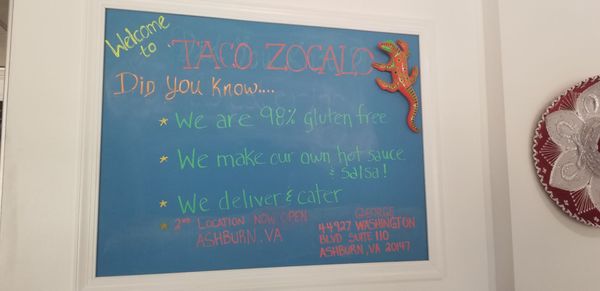 Welcome
to TACO ZOCALO
Did You Know....
* We are 98% gluten free
* We make our own hot sauce
& salsa!
* We deliver & cater
* 2nd LOCATION NOW OPEN
ASHBURN, VA
GEORGE
44927 WASHINGTON
BLVD SUITE 110
ASHBURN, VA 20147